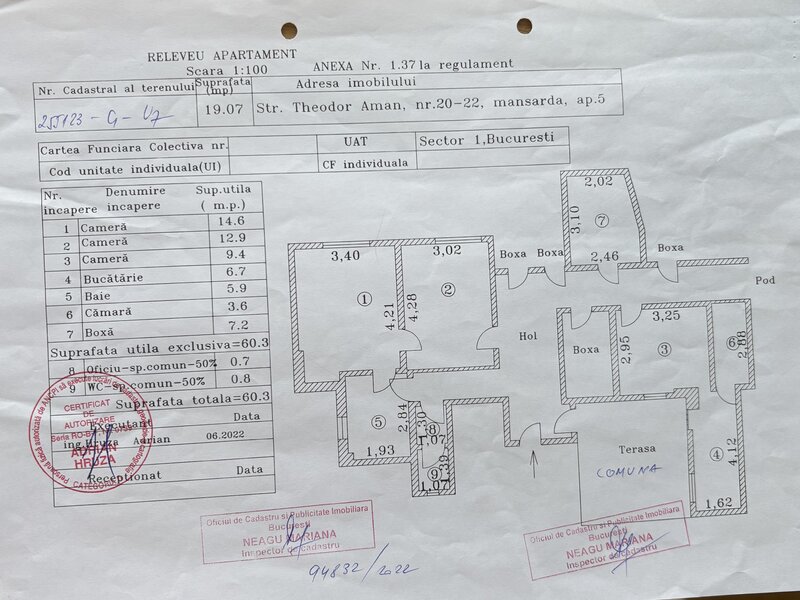 RELEVEU APARTAMENT
Scara 1:100
ANEXA Nr. 1.37 la regulament
Nr. Cadastral al terenului
Suprafata (mp)
Adresa imobilului
255123-C1-U7
19.07
Str. Theodor Aman, nr.20-22, mansarda, ap.5
Cartea Funciara Colectiva nr.
UAT
Sector 1,Bucuresti
Cod unitate individuala(UI)
CF individuala
Nr. incapere
Denumire incapere
Sup.utila ( m.p.)
1 Cameră 14.6
2 Cameră 12.9
3 Cameră 9.4
4 Bucătărie 6.7
5 Baie 5.9
6 Cămară 3.6
7 Boxă 7.2
Suprafata utila exclusiva=60.3
8 Oficiu-sp.comun-50% 0.7
9 WC-sp.comun-50% 0.8
Suprafata totala=60.3
executant
Data
ing.Hruza Adrian
06.2022
Receptionat
Data
CERTIFICAT
DE
AUTORIZARE
ADRIAN
HRUZA
CATEGORIA
2,02
3,10
7
2,46
Boxa
Boxa
Boxa
Pod
3,40
1
4,21
3,02
2
4,28
Hol
Boxa
3,25
2,95
3
6
2,88
5
2,84
1,93
8
1,07
9
1,07
Terasa
COMUNA
4
4,12
1,62
Oficiul de Cadastru si Publicitate Imobiliara
Bucuresti
NEAGU MARIANA
Inspector de cadastru
94832/2022
Oficiul de Cadastru si Publicitate Imobiliara
Bucuresti
NEAGU MARIANA
Inspector de cadastru